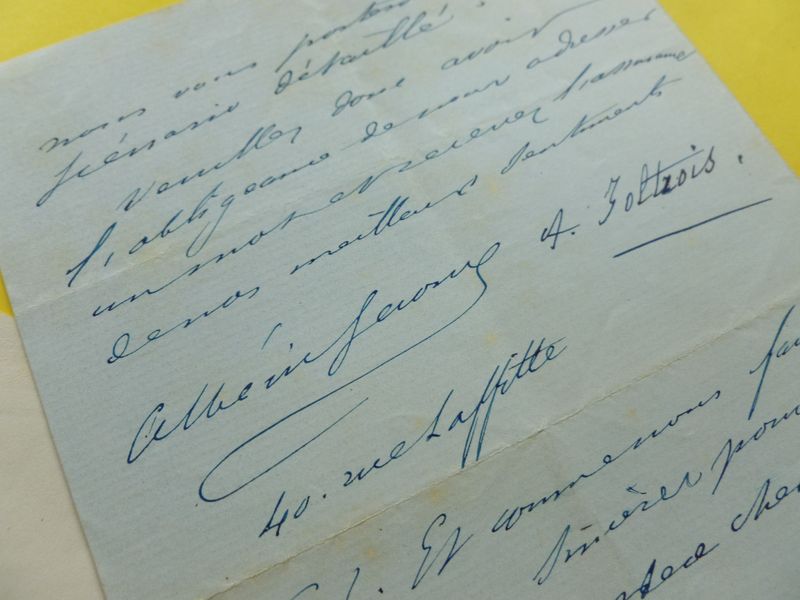 nous vous
scénario détaillé.
veuillez donc avoir
l'obligeance de nous adresser
un mot et recevez l'assurance
de nos meilleurs sentiments
Albéric A.
40. rue Laffitte
Et comme nous
sincères pour